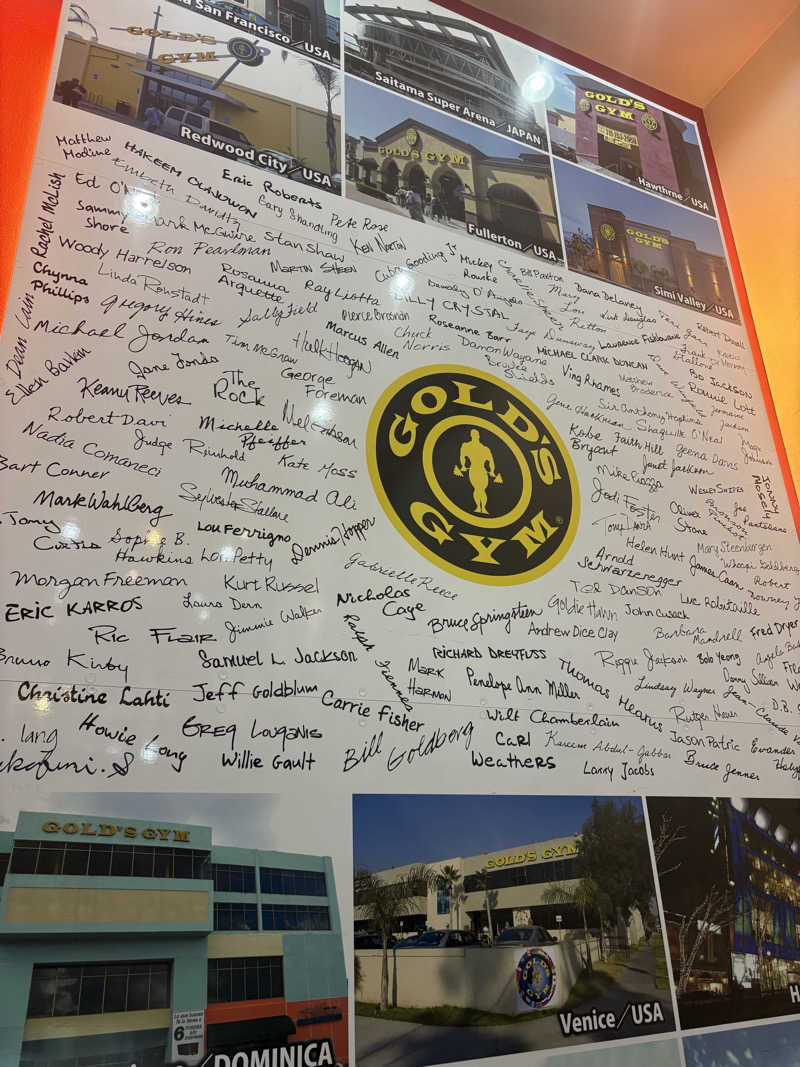 San Francisco/USA
GOLD'S
GYM
Redwood City/USA
Saitama Super Arena/JAPAN
GOLD'S GYM
Fullerton/USA
GOLD'S
GYM
Hawthrne/USA
GOLD'S
GYM
Simi Valley/USA
Matthew
Modine
HAKEEM OLAJUWON
Embeth Davidtz
Eric Roberts
Gary Shandling
Pete Rose
Rachel McLish
Ed
Sammy
Shore
Mark McGwire
Stan Shaw
Ken Norton
Woody Harrelson
Ron Pearlman
MARTIN SHEEN
Cuba Gooding Jr
Mickey
Rourke
Bill Paxton
Dana Delaney
Chynna
Phillips
Linda Ronstadt
Rosanna
Arquette
Ray Liotta
Beverly D'Angelo
Mary
Lou
Retton
Kirk Douglas
Robert Duvall
Dean Cain
Gregory Hines
Sally Field
Pierce Brosnan
BILLY CRYSTAL
Faye Dunaway
Laurence Fishburne
Michael Jordan
Tim McGraw
Hulk Hogan
Marcus Allen
Chuck
Norris
Roseanne Barr
Damon Wayans
MICHAEL CLARK DUNCAN
Ellen Barkin
Jane Fonda
George
Foreman
Brooke
Shields
Ving Rhames
Matthew
Broderick
Bo Jackson
Ronnie Lott
Keanu Reeves
The
Rock
Gene Hackman
Sir Anthony Hopkins
Jermaine
Jackson
Robert Davi
Michelle
Pfeiffer
Mel Gibson
Kobe
Bryant
Faith Hill
Shaquille O'Neal
Magic
Johnson
Nadia Comaneci
Judge
Reinhold
Kate Moss
Geena Davis
Janet Jackson
Bart Conner
Muhammad Ali
Mike Piazza
Wesley Snipes
Mark Wahlberg
Sylvester Stallone
Jodi Foster
Joe
Pantoliano
Tony
Curtis
Sophie B.
Hawkins
Lou Ferrigno
Lori Petty
Dennis Hopper
Oliver
Stone
Helen Hunt
Mary Steenburgen
Whoopi Goldberg
Morgan Freeman
Kurt Russel
Gabrielle Reece
Arnold
Schwarzenegger
James Caan
Robert
Downey
ERIC KARROS
Laura Dern
Nicholas
Cage
Ted Danson
Luc Robitaille
Ric Flair
Jimmie Walker
Bruce Springsteen
Goldie Hawn
John Cusack
Barbara
Mandrell
Fred Dryer
Andrew Dice Clay
Bruno Kirby
Samuel L. Jackson
Ralph Fiennes
RICHARD DREYFUSS
Reggie Jackson
Bolo Yeong
Mark
Harmon
Penelope Ann Miller
Thomas Hearns
Lindsay Wagner
Christine Lahti
Jeff Goldblum
Carrie Fisher
Wilt Chamberlain
Howie Long
Greg Louganis
Bill Goldberg
Carl
Weathers
Kareem Abdul-Gabbar
Jason Patric
Evander
Willie Gault
Larry Jacobs
Bruce Jenner
GOLD'S
GYM
®
GOLD'S GYM
6
DOMINICA
GOLD'S GYM
GOLD'S
GYM
Venice/USA
H